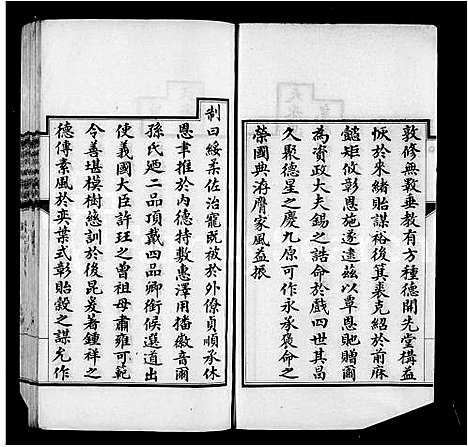 敦修無斁垂教有方種德開先堂搆益
恢於來緒貽謀裕後箕裘克紹於前麻
懿矩攸彰恩施遂逮兹以覃恩貤贈爾
為資政大夫錫之誥命於戲四世其昌
久聚德星之慶九原可作永承褒命之
榮國典洊膺家風益振
制曰綏柔佐治寵既被於外僚貞順承休
恩聿推於內德特敷惠澤用播徽音爾
孫氏廼二品頂戴四品卿銜候選道出
使義國大臣許珏之曾祖母肅雍可範
令善堪模樹慈訓於後昆爰著鍾祥之
德傳素風於奕葉式彰貽穀之謀允作